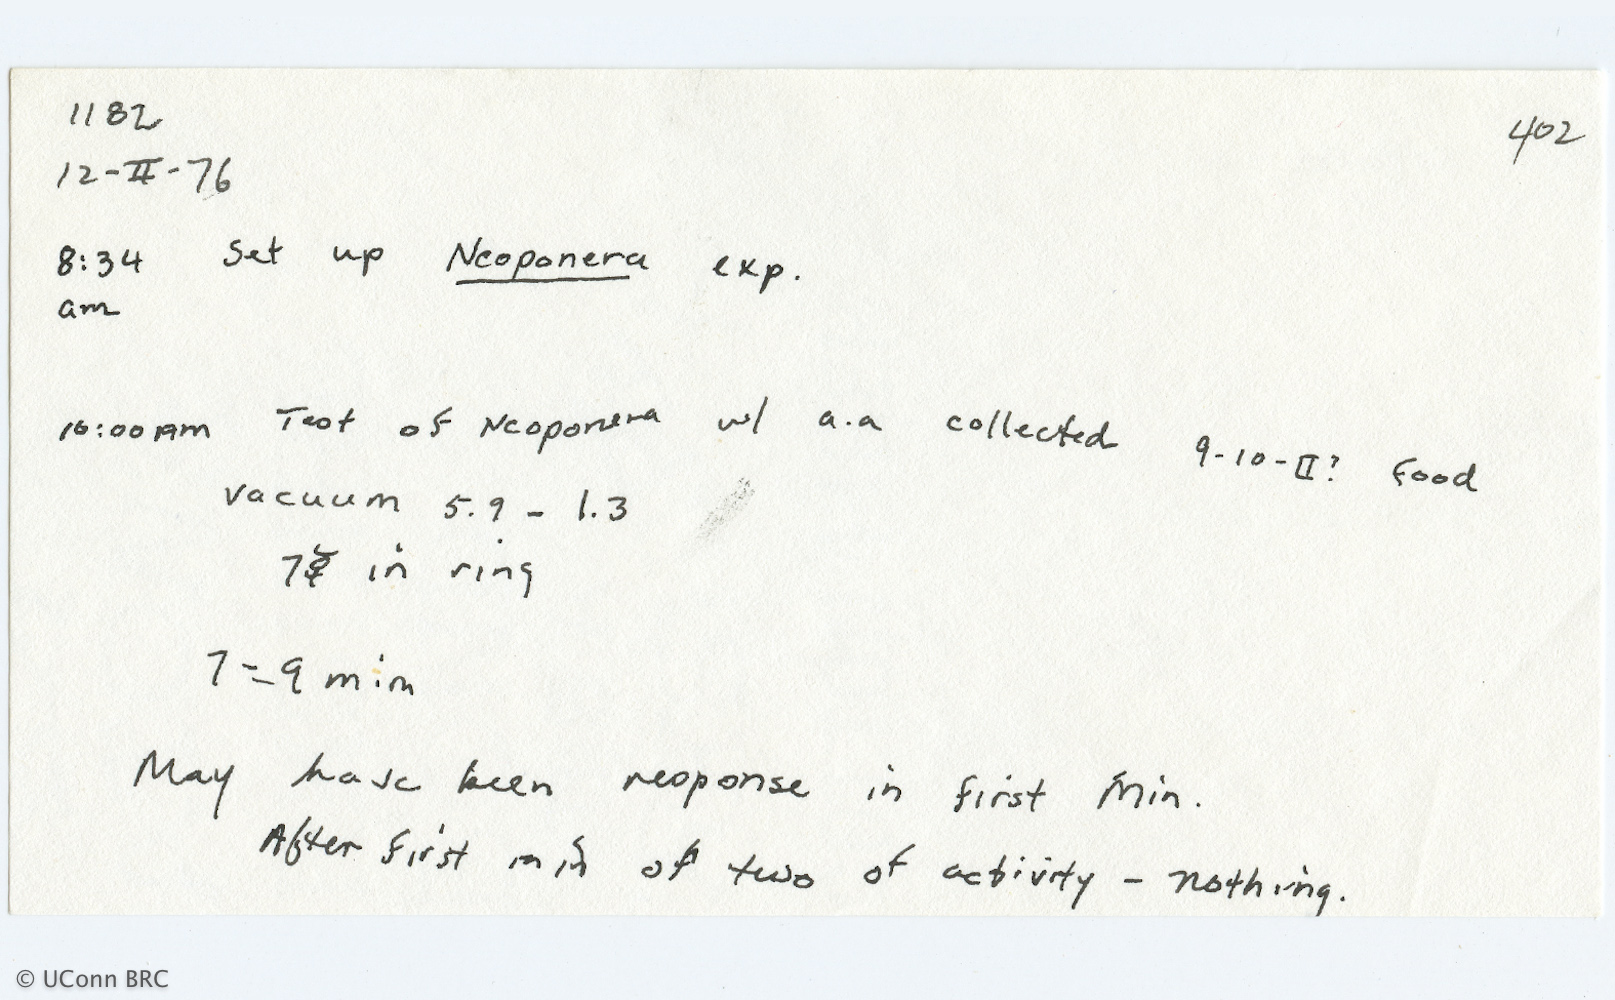 1182
402
12-II-76
8:34 Set up Neoponera exp.
am
10:00 AM Test of Neoponera w/ a.a collected 9-10-II? Food
vacuum 5.9 - 1.3
7☿ in ring
7 = 9 min
May have been response in first Min.
After first min of two of activity - nothing.
© UConn BRC